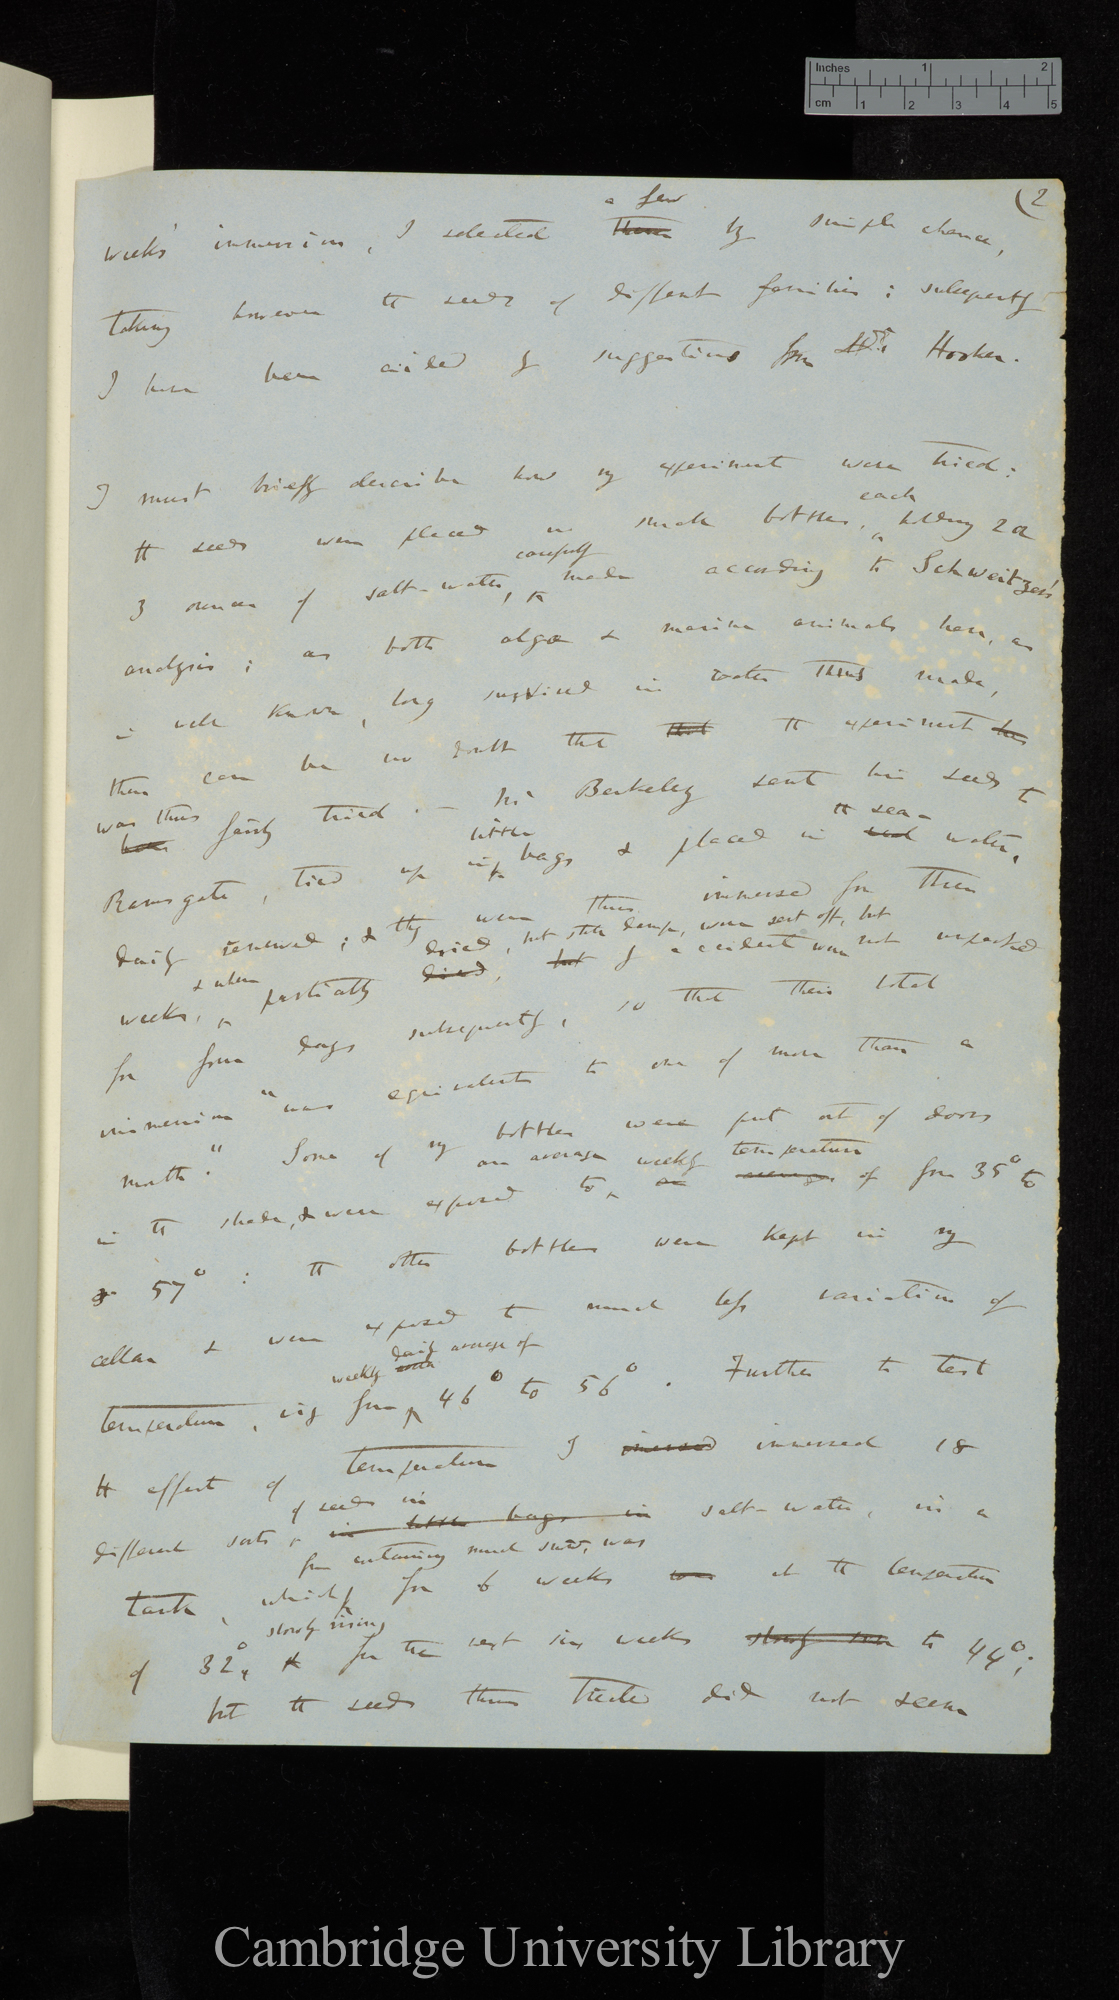 Inches 1 2
cm 1 2 3 4 5
(2
a few
weeks' immersion, I selected them by simple chance,
taking however the seeds of different families; subsequently
I have been aided by suggestions from Dr. Hooker.
I must briefly describe how my experiment were tried:
each
the seeds were placed in small bottles, holding 2 or
carefully
3 ounces of salt-water, made according to Schweitzer's
analysis; as both algæ & marine animals have, as
is well known, long survived in water thus made,
there can be no doubt that that the experiment has
was thus been fairly tried. — Mr Berkeley sent his seeds to
little the sea-
Ramsgate, tied up in bags & placed in water,
daily renewed; & they were thus immersed for three
dried, but still damp, were sent off, but
& when
weeks, partially dried, but by accident were not unpacked
for four days subsequently, so that their total
immersion "was equivalent to one of more than a
month." Some of my bottles were put out of doors
an average weekly temperature
in the shade, & were exposed to an average of from 35° to
57°: the other bottles were kept in my
cellar & were exposed to much less variation of
daily average of
weekly
temperature, viz from 46° to 56°. Further to test
the effect of temperature I immersed immersed 18
of seeds in
different sorts in little bags in salt-water, in a
from containing much snow, was
tank, which for 6 weeks was at the temperature
slowly rising
of 32°, & for the next six weeks slowly rose to 44°;
but the seeds thus treated did not seem
Cambridge University Library